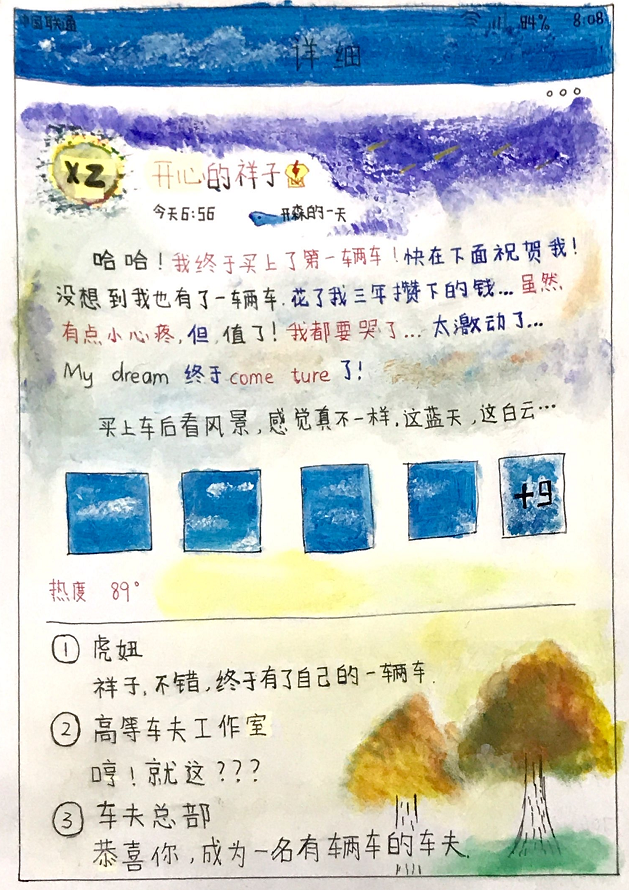 中国联通 84% 8:08
详细
XZ
开心的祥子
今天6:56 开森的一天
哈哈！我终于买上了第一车两车！快在下面祝贺我！
没想到我也有了一车两车.花了我三年攒下的钱...虽然
有点小心疼,但,值了！我都要哭了...太激动了...
My dream 终于come ture了！
买上车后看风景,感觉真不一样,这蓝天,这白云…
+9
热度 89°
① 虎妞
祥子,不错,终于有了自己的一车两车.
② 高等车夫工作室
哼！就这？？？
③ 车夫总部
恭喜你,成为一名有车两车的车夫.